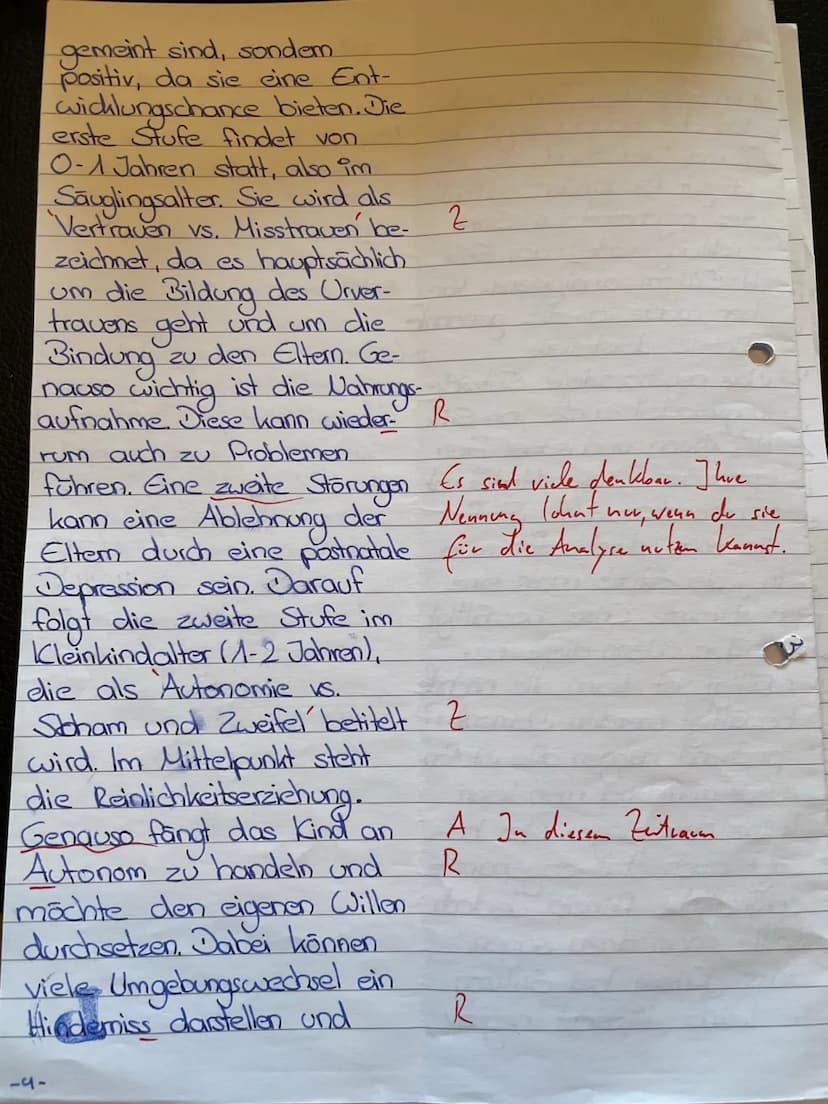 gemeint sind, sondern
positiv, da sie eine Ent-
wicklungschance bieten. Die
erste Stufe findet von
0-1 Jahren statt, also im
Säuglingsalter. Sie wird als
'Vertrauen vs. Misstrauen' be- Z
zeichnet, da es hauptsächlich
um die Bildung des Urver-
trauens geht und um die
Bindung zu den Eltern. Ge-
nauso wichtig ist die Nahrungs-
aufnahme. Diese kann wieder- R
rum auch zu Problemen
führen. Eine zweite Störungen Es sind viele denkbar. Ihre
kann eine Ablehnung der Nennung lohnt nur, wenn du sie
Eltern durch eine postnatale für die Analyse nutzen kannst.
Depression sein. Darauf
folgt die zweite Stufe im
Kleinkindalter (1-2 Jahren),
die als 'Autonomie vs.
Scham und Zweifel' betitelt Z
wird. Im Mittelpunkt steht
die Reinlichkeitserziehung.
Genauso fängt das Kind an A In diesem Zeitraum
Autonom zu handeln und R
möchte den eigenen Willen
durchsetzen. Dabei können
viele Umgebungswechsel ein
Hinderniss darstellen und R
-4-